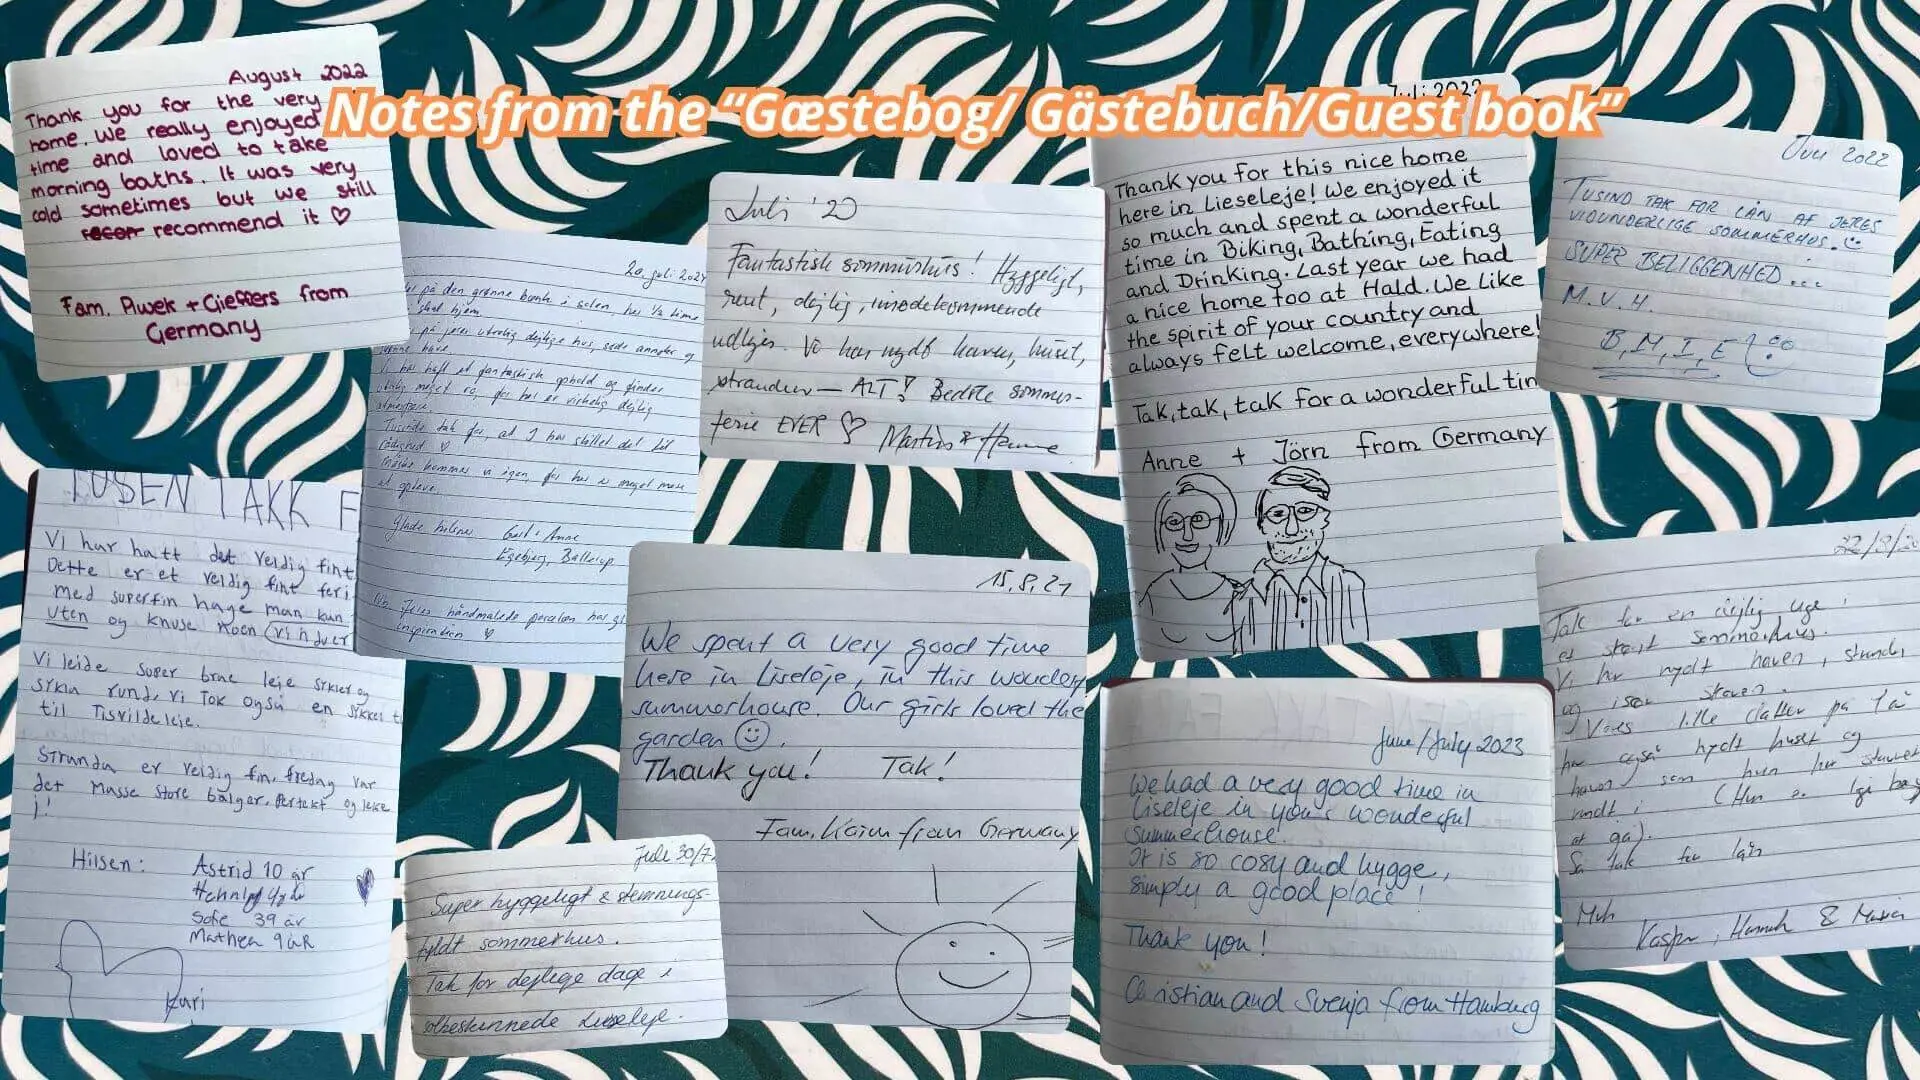 Notes from the “Gæstebog/ Gästebuch/Guest book”
August 2022
Thank you for the very
home. We really enjoyed
time and loved to take
morning baths. It was very
cold sometimes but we still
recommend it ♡
Fam. Piwek + Gieffers from
Germany
20. juli 2021
på den grønne bænk i solen, har 1/2 time
skal hjem
på jeres utrolig dejlige hus, søde anneks og
have
Vi har haft et fantastisk ophold og finder
utrolig meget ro, for her er virkelig dejlig
atmosfære.
Tusinde tak for, at I har stillet det til
rådighed ♡
Måske kommer vi igen, for her er meget mere
at opleve.
Glade hilsner
Anne
Egebjerg, Ballerup
Jeres håndmalede porcelæn har gi
inspiration ♡
Juli '20
Fantastisk sommerhus! Hyggeligt,
rent, dejlig, imødekommende
udlejer. Vi har nydt haven, huset,
stranden — ALT! Bedste sommer-
ferie EVER ♡ Martin & Hanne
Juli 2022
Thank you for this nice home
here in Lieseleje! We enjoyed it
so much and spent a wonderful
time in Biking, Bathing, Eating
and Drinking. Last year we had
a nice home too at Hald. We like
the spirit of your country and
always felt welcome, everywhere!
Tak, tak, tak for a wonderful tim
Anne + Jörn from Germany
Juli 2022
TUSIND TAK FOR LÅN AF JERES
VIDUNDERLIGE SOMMERHUS. ☺
SUPER BELIGGENHED...
M.V.H.
B, M, I, E
TUSEN TAKK F
Vi har hatt det veldig fint
Dette er et veldig fint feri
med superfin hage man kan
uten og knuse noen (vinduer
Vi leide super bra leie sykler og
sykla rundt. Vi tok også en sykkelt
til Tisvildeleje.
Stranda er veldig fin, fredag var
det masse store bølger. Perfekt og leke
i!
Hilsen: Astrid 10 år
Sofie 39 år
Mathea 9 år
Kari
15.8.21
We spent a very good time
here in Liseleje, in this wonder
summerhouse. Our girls loved the
garden ☺.
Thank you! Tak!
Fam. Kaim from Germany
Juli 30/7
Super hyggeligt & stemnings-
fyldt sommerhus.
Tak for dejlige dage i
solbeskinnede Liseleje.
June/July 2023
We had a very good time in
Liseleje in your's wonderful
summerhouse.
It is so cosy and hygge,
simply a good place!
Thank you!
Christian and Svenja from Hamburg
Tak for en dejlig uge i
et skønt sommerhus.
Vi har nydt haven, stranden
og især skoven.
Vores lille datter på 1 år
har også nydt huset og
haven som hun har stavret
rundt i (Hun er lige beg
at gå).
Så tak for lån
Mvh
Kasper, Hannah & Maria